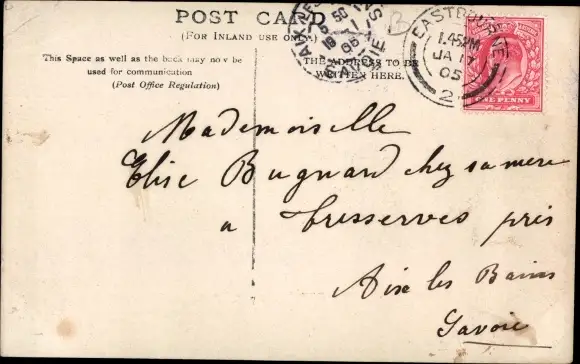 POST CARD
(FOR INLAND USE ONLY.)
This Space as well as the back may now be
used for communication
(Post Office Regulation)
THE ADDRESS TO BE
WRITTEN HERE.
EASTBOURNE
1.45PM
JA 17
05
2
ONE PENNY
Mademoiselle
Elise Bugnard chez sa mere
a Tresserves près
Aix les Bains
Savoie